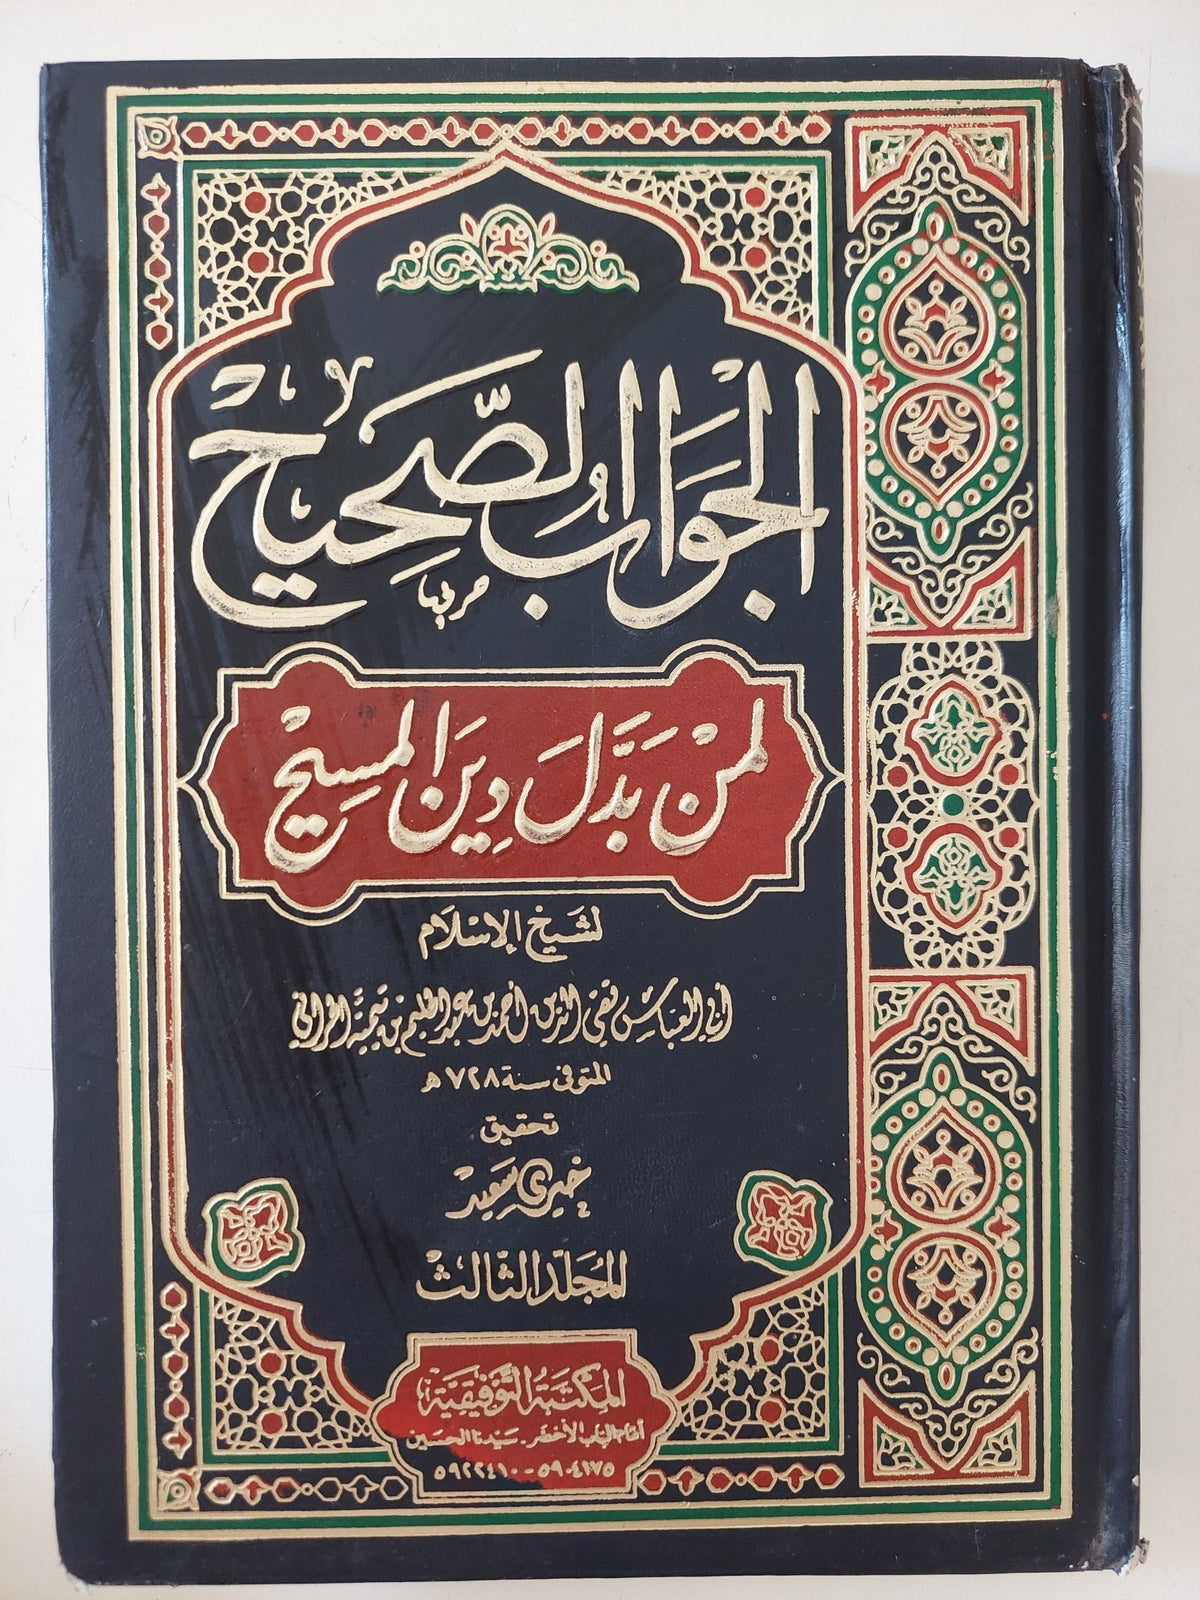 الجَوَابُ الصَّحِيحْ
لمَنْ بَدَّلَ دِينَ المسِيحْ
لشَيخ الإسْلَام
أبي العباس تقي الدين أحمد بن عبد الحليم بن تيمية الحراني
المتوفى سنة ٧٢٨ هـ
تحقيق
خيري سَعِيدْ
المجَلّد الثالث
المكتبَة التوفيقية
أمام الباب الأخضر - سيدنا الحسين
٥٩٠٤١٧٥ - ٥٩٢٢٤١٠